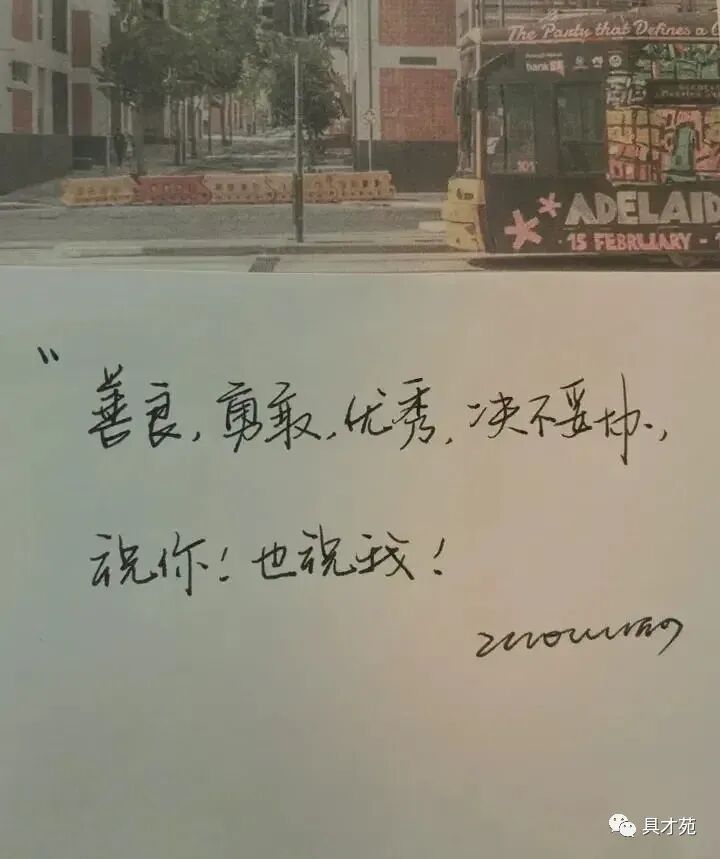 The Party that Defines a
bankSA
101
ADELAID
15 FEBRUARY -
"善良,勇敢,优秀,决不妥协,
祝你!也祝我!
具才苑